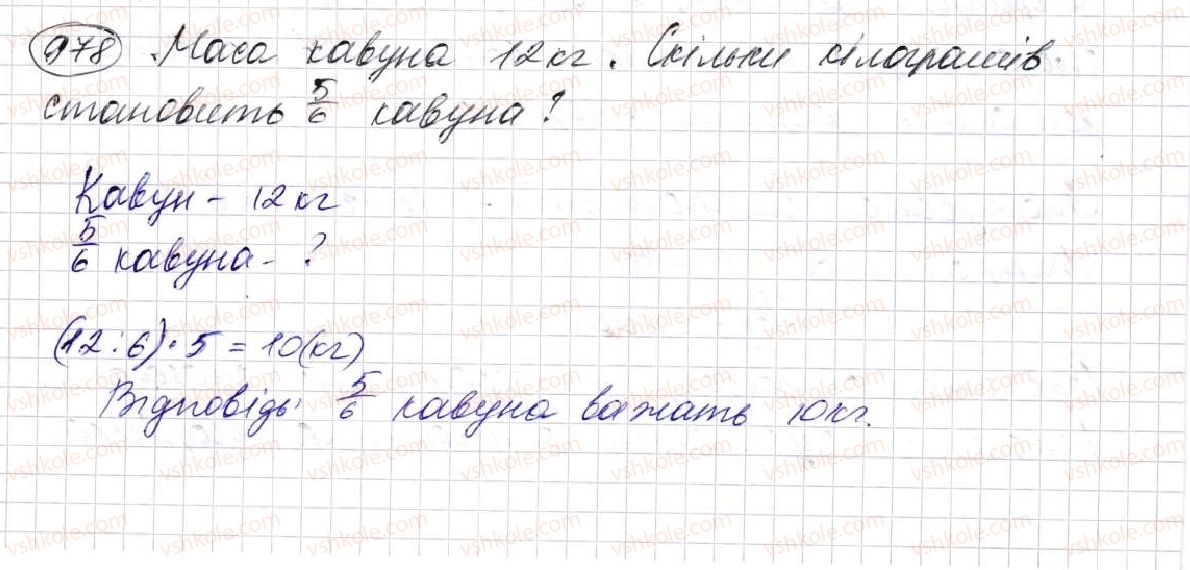 978 Маса кавуна 12 кг. Скільки кілограмів
становить 5/6 кавуна?
Кавун - 12 кг
5/6 кавуна - ?
(12:6)·5 = 10(кг)
Відповідь: 5/6 кавуна важать 10 кг.